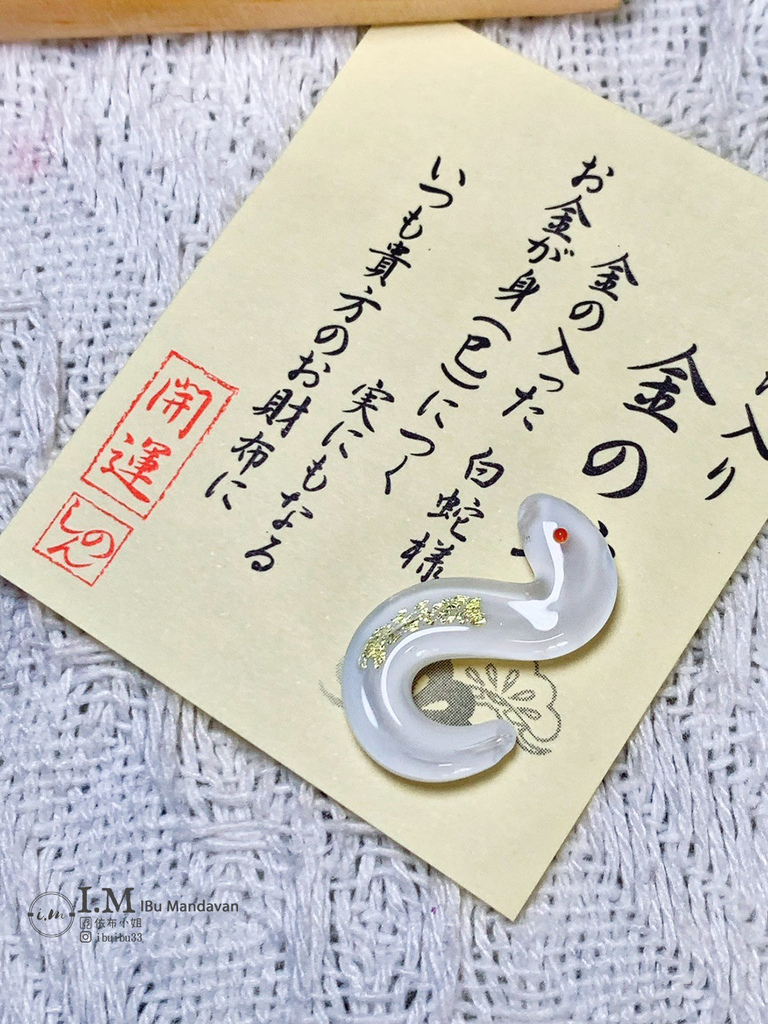 入り
金の
金の入った 白蛇様
お金が身(巳)につく
実にもなる
いつも貴方のお財布に
開運
しのん
i.m
I.M IBu Mandavan
依布小姐
ibuibu33